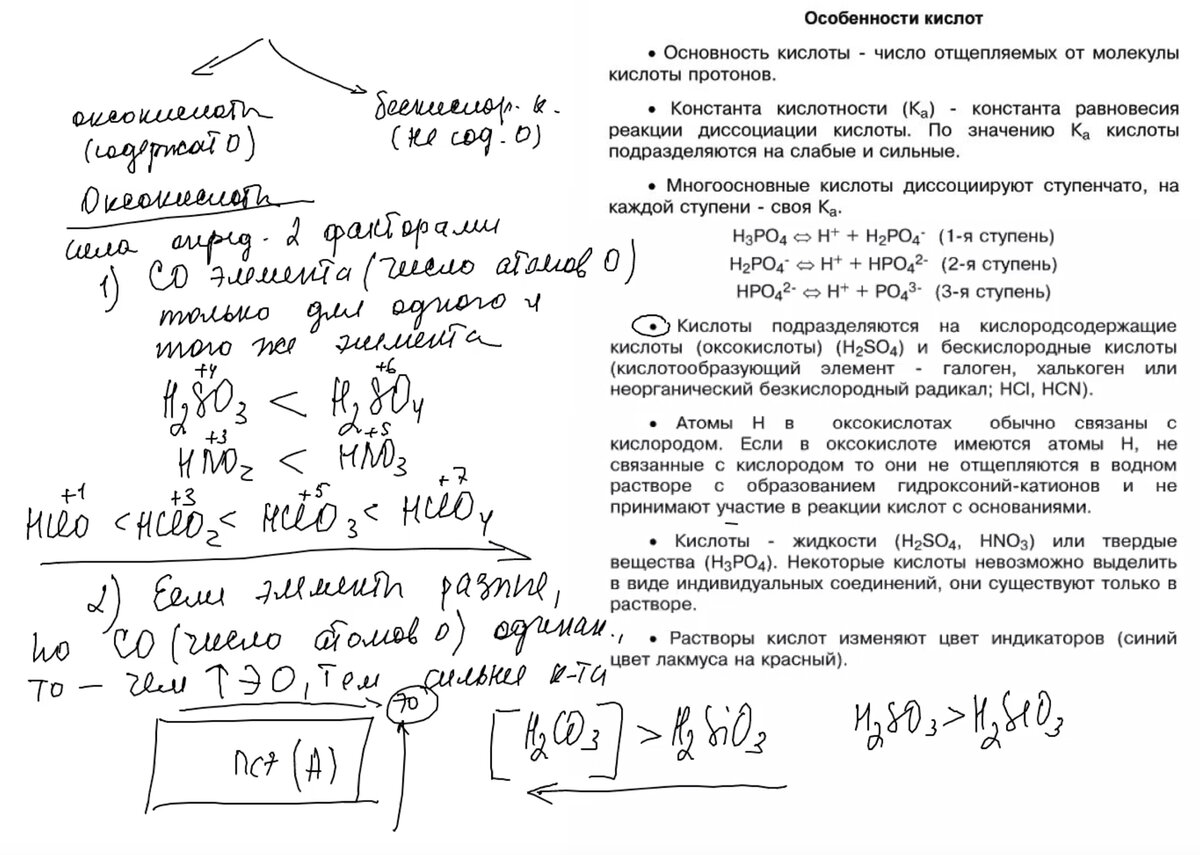 оксокислоты
(содержат О)
бескислор. к.
(не сод. О)
Оксокислоты
сила опред. 2 факторами
1) СО элемента (число атомов О)
только для одного и
того же элемента
+4 +6
H₂SO₃ < H₂SO₄
+3 +5
HNO₂ < HNO₃
+1 +3 +5 +7
HClO < HClO₂ < HClO₃ < HClO₄
2) Если элементы разные,
но СО (число атомов О) одинак.,
то — чем ↑ ЭО, тем сильнее к-та
ЭО
ПСХЭ (А)
[H₂CO₃] > H₂SiO₃
H₂SO₃ > H₂SeO₃
Особенности кислот
• Основность кислоты - число отщепляемых от молекулы
кислоты протонов.
• Константа кислотности (Kа) - константа равновесия
реакции диссоциации кислоты. По значению Kа кислоты
подразделяются на слабые и сильные.
• Многоосновные кислоты диссоциируют ступенчато, на
каждой ступени - своя Kа.
H₃PO₄ ⇔ H⁺ + H₂PO₄⁻ (1-я ступень)
H₂PO₄⁻ ⇔ H⁺ + HPO₄²⁻ (2-я ступень)
HPO₄²⁻ ⇔ H⁺ + PO₄³⁻ (3-я ступень)
• Кислоты подразделяются на кислородсодержащие
кислоты (оксокислоты) (H₂SO₄) и бескислородные кислоты
(кислотообразующий элемент - галоген, халькоген или
неорганический безкислородный радикал; HCl, HCN).
• Атомы H в оксокислотах обычно связаны с
кислородом. Если в оксокислоте имеются атомы H, не
связанные с кислородом то они не отщепляются в водном
растворе с образованием гидроксоний-катионов и не
принимают участие в реакции кислот с основаниями.
• Кислоты - жидкости (H₂SO₄, HNO₃) или твердые
вещества (H₃PO₄). Некоторые кислоты невозможно выделить
в виде индивидуальных соединений, они существуют только в
растворе.
• Растворы кислот изменяют цвет индикаторов (синий
цвет лакмуса на красный).